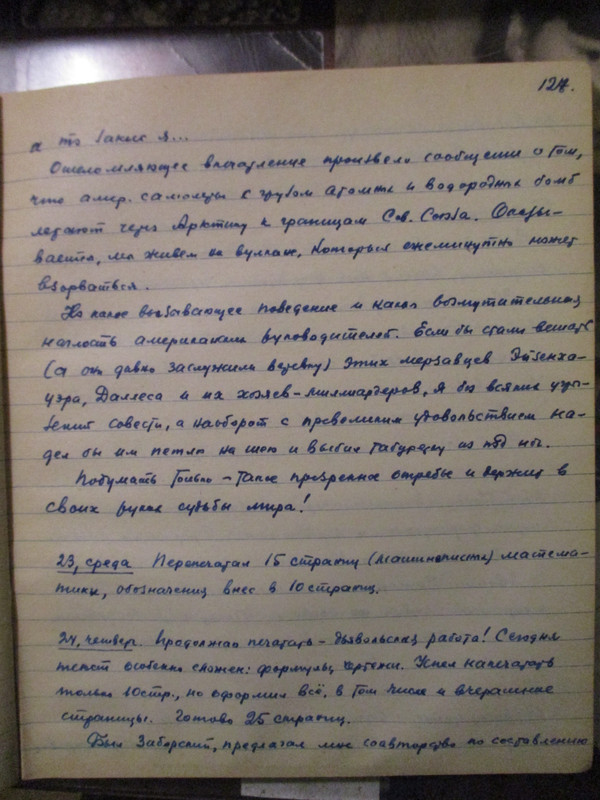 127.
а то
Ошеломляющее впечатление произвело сообщение о том,
что амер. самолеты с грузом атомных и водородных бомб
летают через Арктику к границам Сов. Союза. Оказы-
вается, мы живем на вулкане, который ежеминутно может
взорваться.
Но какое вызывающее поведение и какая возмутительная
наглость американских руководителей. Если бы стали вешать
(а они давно заслужили веревку) этих мерзавцев Эйзенха-
уэра, Даллеса и их хозяев-миллиардеров, я без всяких угры-
зений совести, а наоборот с превеликим удовольствием на-
дел бы им петлю на шею и выбил табуретку из под ног.
Подумать только - такое презренное отребье и держит в
своих руках судьбы мира!
23, среда Перепечатал 15 страниц (машинописных) матема-
тики, обозначения внес в 10 страниц.
24, четверг. Продолжаю печатать - дьявольская работа! Сегодня
текст особенно сложен: формулы, чертежи. Успел напечатать
только 10 стр., но оформил всё, в том числе и вчерашние
страницы. Готово 25 страниц.
Был Заборский, предлагал мне соавторство по составлению